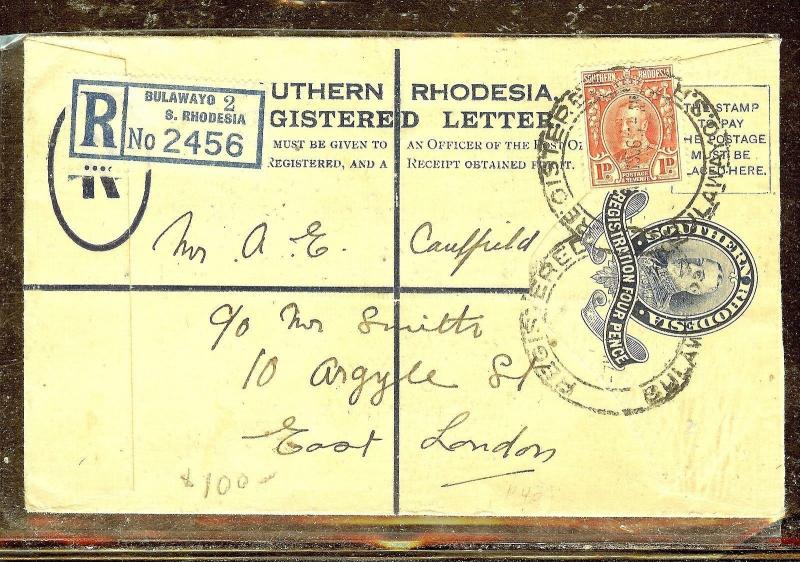 BULAWAYO 2
S. RHODESIA
R No 2456
UTHERN RHODESIA.
GISTERED LETTER
MUST BE GIVEN TO AN OFFICER OF THE POST OF
REGISTERED, AND A RECEIPT OBTAINED F IT.
SOUTHERN RHODESIA
1D POSTAGE & REVENUE 1D
THE STAMP
TO PAY
HE POSTAGE
MUST BE
LACED HERE.
REGISTERED
BULAWAYO
REGISTERED
BULAWA
SOUTHERN RHODESIA
REGISTRATION FOUR PENCE
Mr A. E. Caulfield
c/o Mr Smith
10 Argyle St
East London
$100-